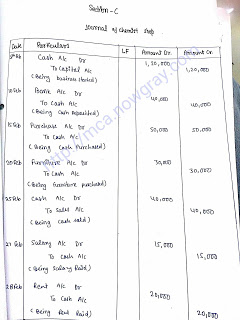 Section - C
Journal of chemist shop
Date Particulars LF Amount Dr. Amount Cr.
5th Feb Cash A/c Dr 1,20,000
To Capital A/c 1,20,000
(Being business started)
10 Feb Bank A/c Dr 40,000
To Cash A/c 40,000
(Being cash deposited)
15 Feb Purchase A/c Dr 50,000
To Cash A/c 50,000
(Being Cash Purchased)
20 Feb Furniture A/c Dr 30,000
To Cash A/c 30,000
(Being furniture purchased)
25 Feb Cash A/c Dr 40,000
To Sales A/c 40,000
(Being cash sold)
27 Feb Salary A/c Dr 15,000
To Cash A/c 15,000
(Being Salary Paid)
28 Feb Rent A/c Dr 20,000
To Cash A/c 20,000
(Being Rent Paid)
http://mca.nowgray.com